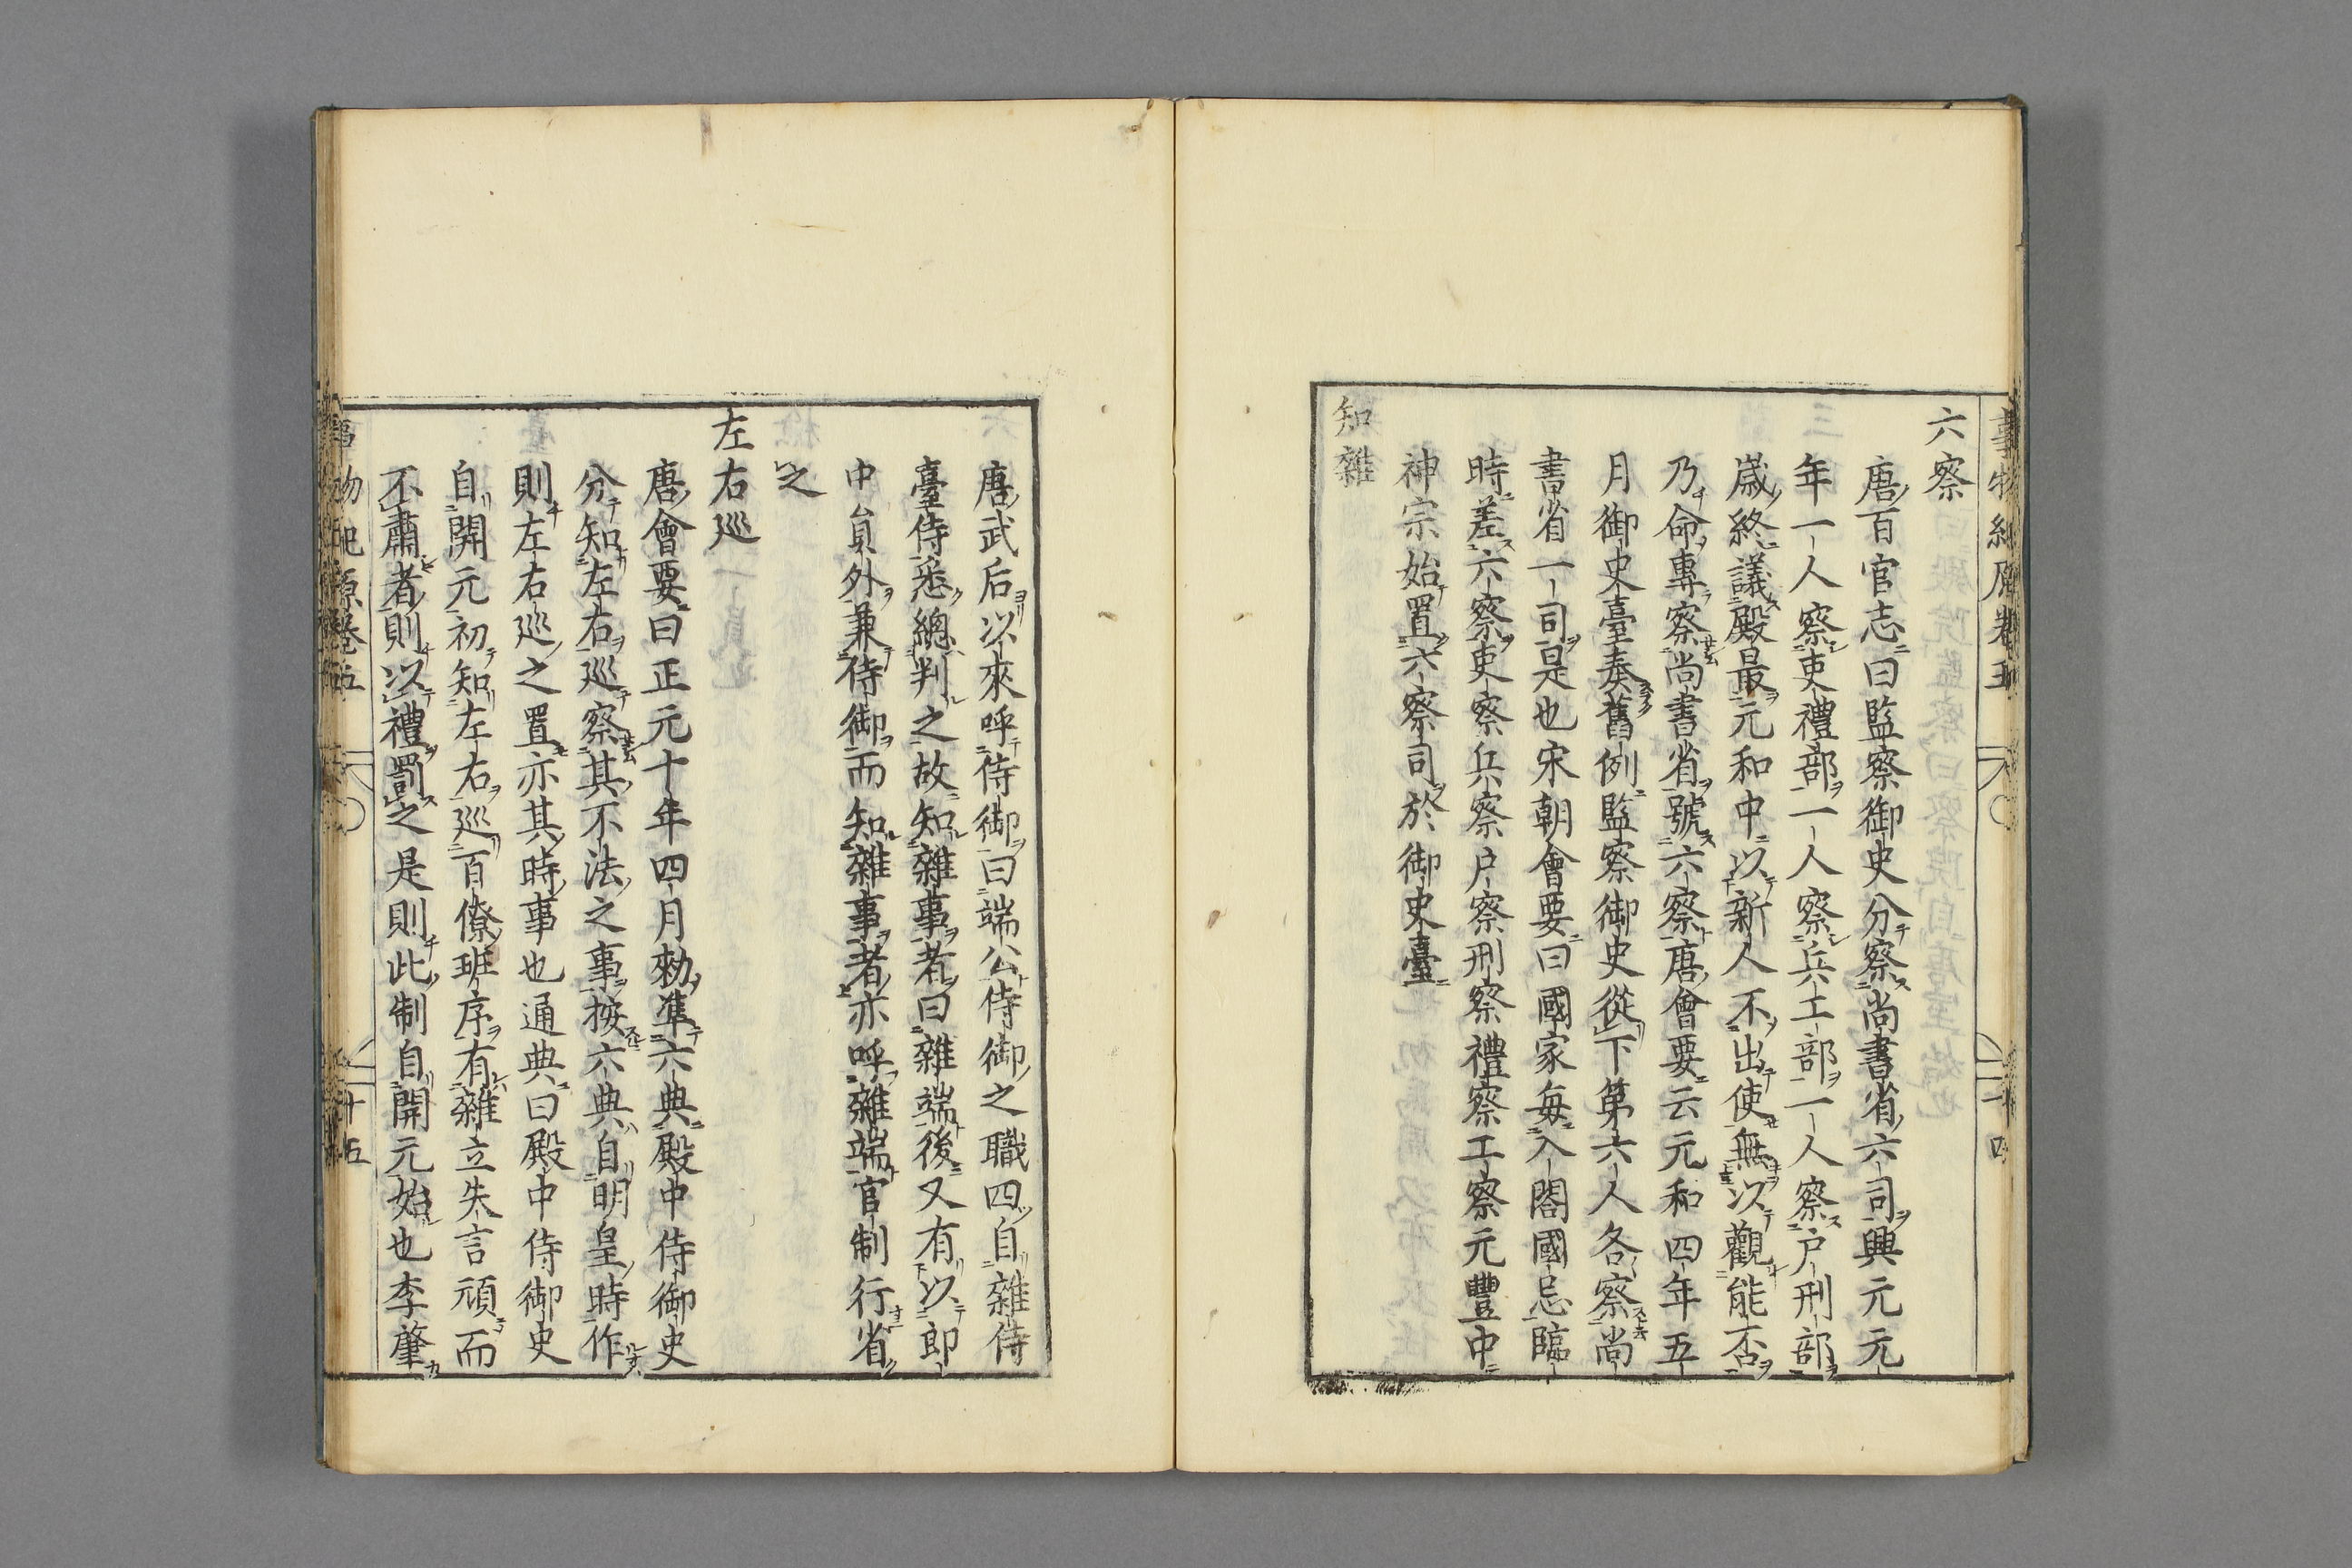 事物紀原卷五
十四
六察
唐百官志曰監察御史分察尚書省六司興元元
年一人察吏禮部一人察兵工部一人察户刑部
歲終議殿最元和中以新人不出使無以觀能否
乃命專察尚書省號六察唐會要云元和四年五
月御史臺奏舊例監察御史從下第六人各察尚
書省一司是也宋朝會要曰國家每入閤國忌臨
時差六察吏察兵察户察刑察禮察工察元豐中
神宗始置六察司於御史臺
知雜
唐武后以來呼侍御曰端公侍御之職四自雜侍
臺侍悉總判之故知雜事者曰雜端後又有以郎
中員外兼侍御而知雜事者亦呼雜端官制行省
之
左右巡
唐會要曰正元十年四月勑準六典殿中侍御史
分知左右巡察其不法之事按六典自明皇時作
則左右巡之置亦其時事也通典曰殿中侍御史
自開元初知左右巡百僚班序有雜立失言頑而
不肅者則以禮罰之是則此制自開元始也李肇
事物紀原卷五
十五